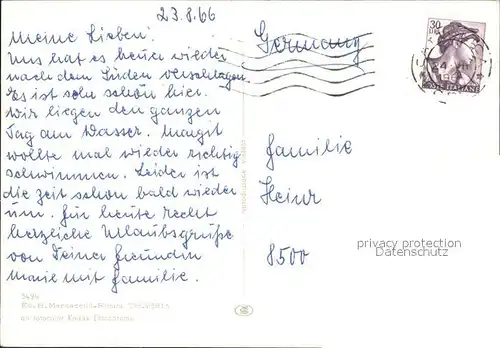 23.8.66
Meine Lieben!
Uns hat es heuer wieder
nach dem Süden verschlagen.
Es ist sehr schön hier.
Wir liegen den ganzen
Tag am Wasser. Margit
wollte mal wieder richtig
schwimmen. Leider ist
die Zeit schon bald wieder
um. Für heute recht
herzliche Urlaubsgrüße
von Deiner Freundin
mit Familie.
Germany
30
Familie
Heinr
8500
privacy protection
Datenschutz